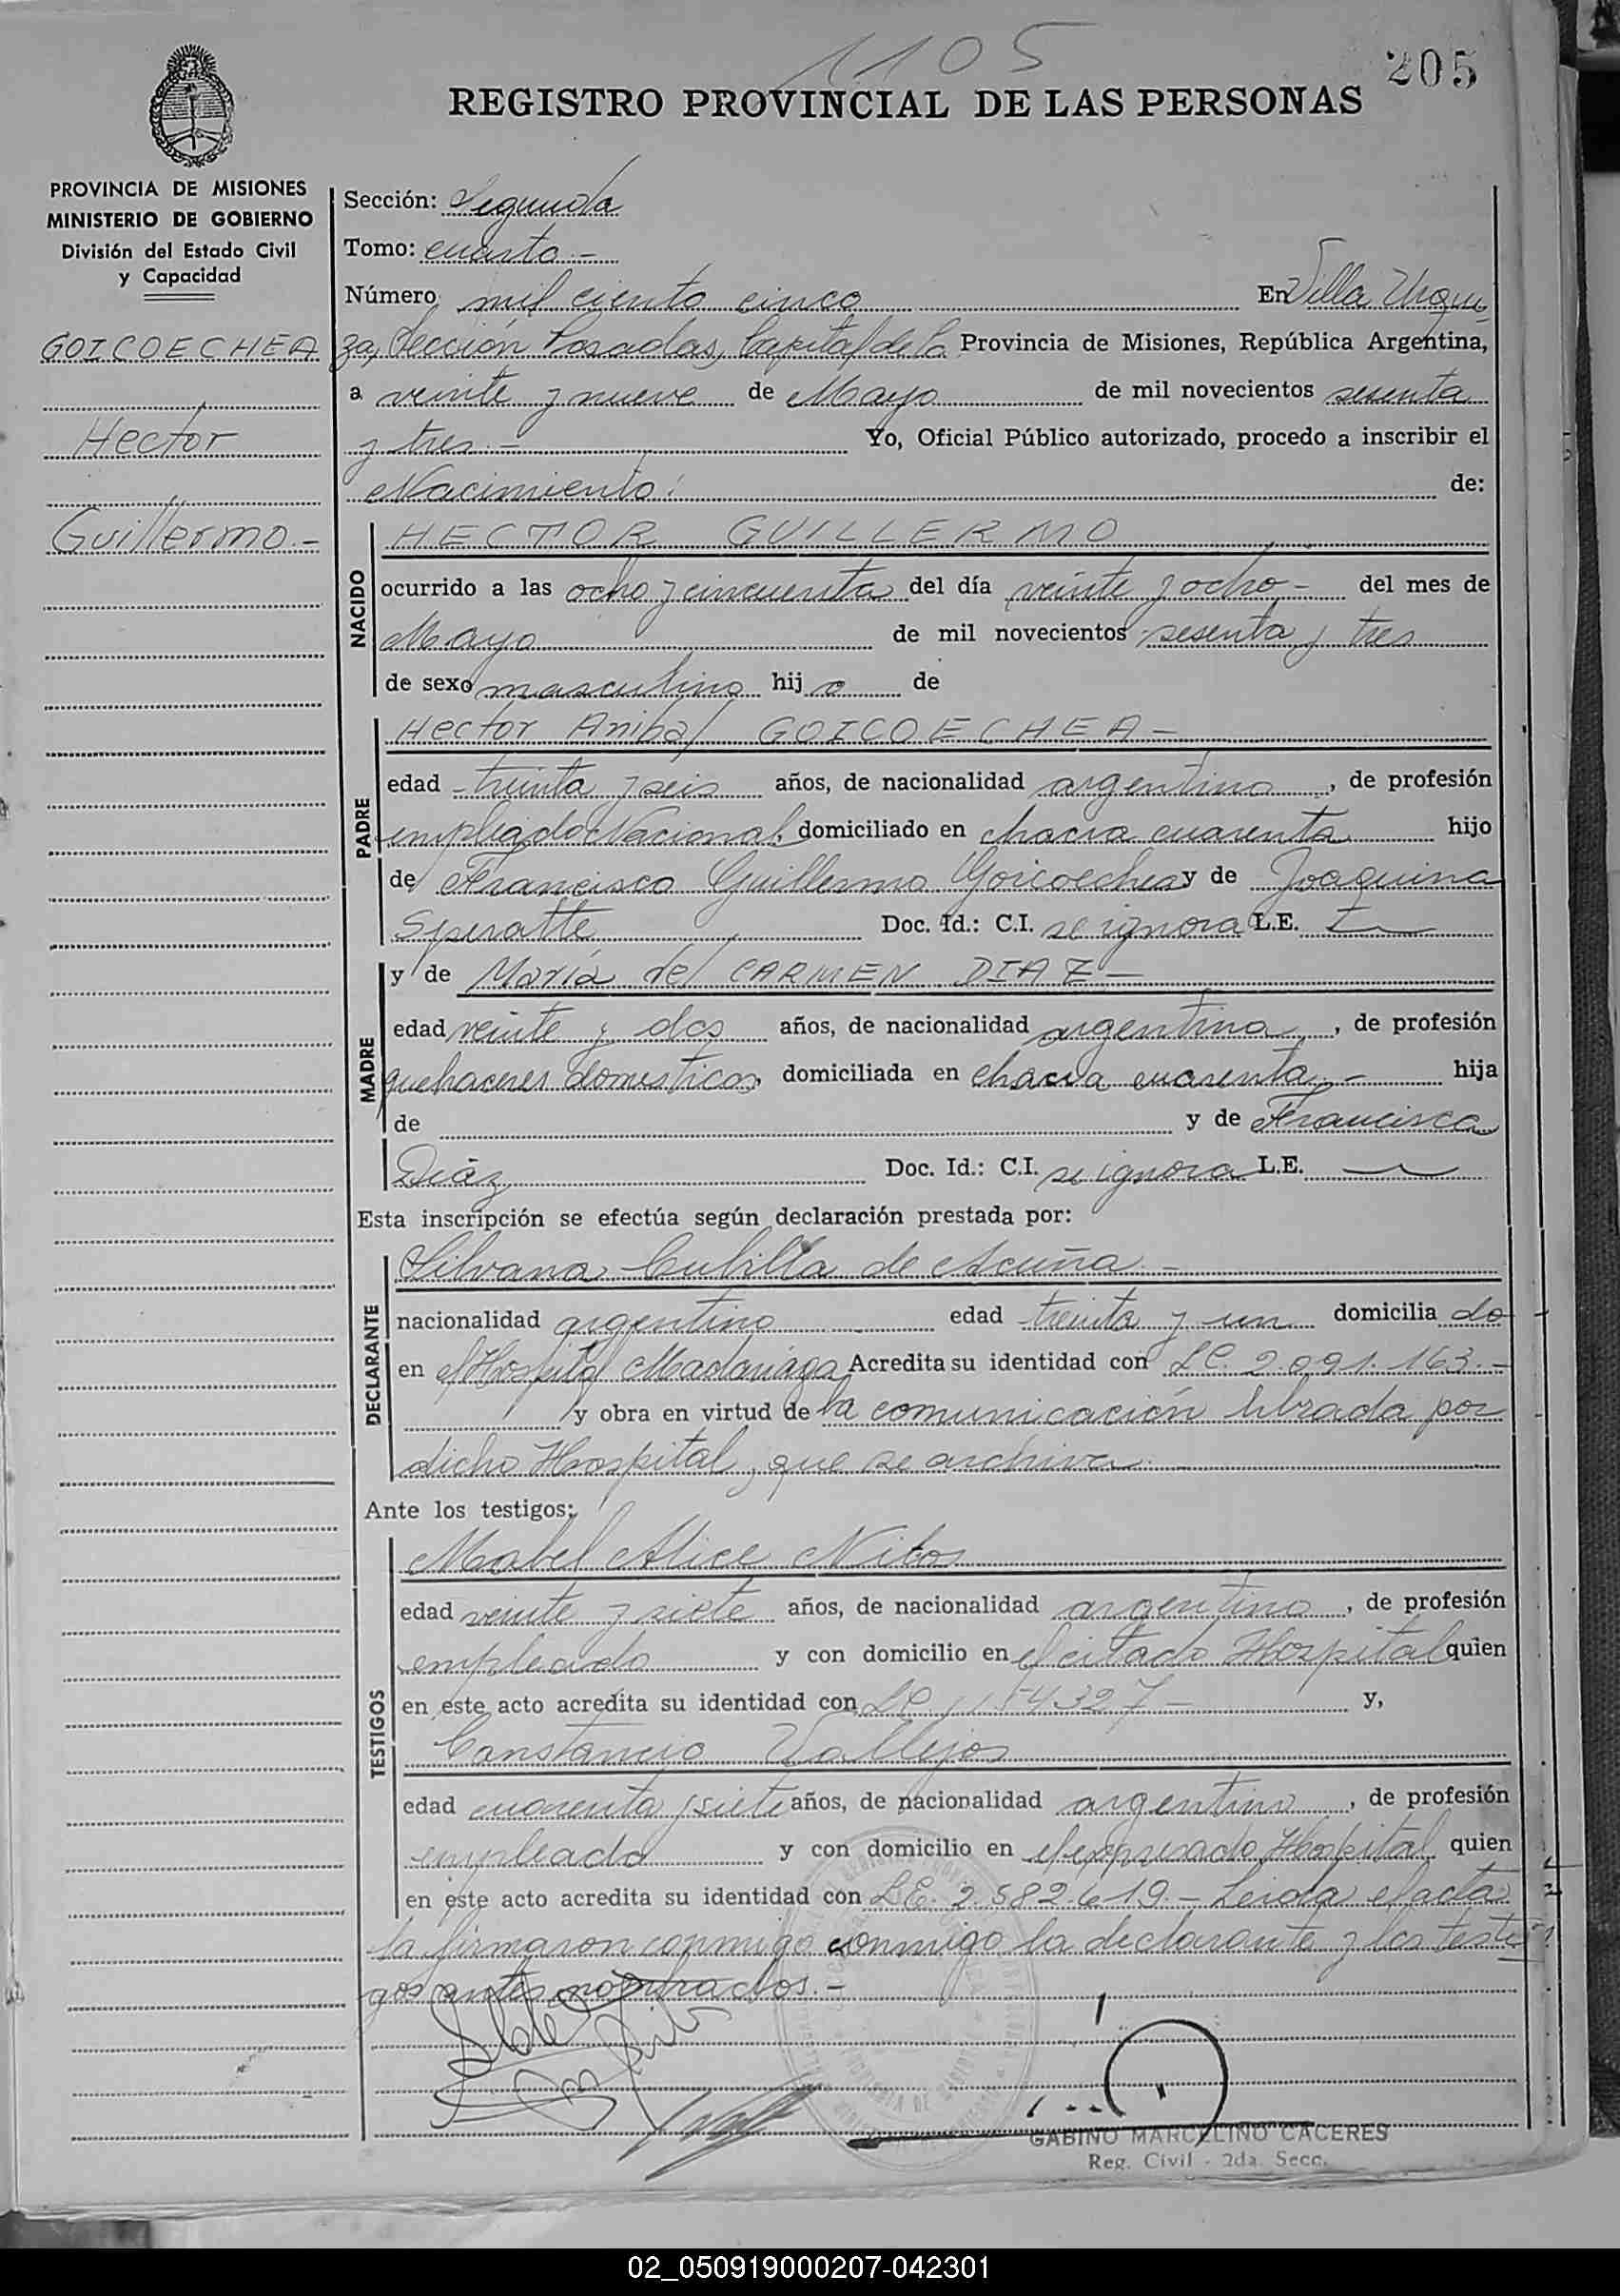 1105
205
REGISTRO PROVINCIAL DE LAS PERSONAS
PROVINCIA DE MISIONES
MINISTERIO DE GOBIERNO
División del Estado Civil
y Capacidad
GOICOECHEA
Hector
Guillermo.-
Sección: Segunda
Tomo: cuarto.-
Número mil ciento cinco En Villa Urqui-
za, Sección Posadas, Capital de la Provincia de Misiones, República Argentina,
a veinte y nueve de Mayo de mil novecientos sesenta
y tres.- Yo, Oficial Público autorizado, procedo a inscribir el
Nacimiento: de:
NACIDO
HECTOR GUILLERMO
ocurrido a las ocho y cincuenta del día veinte y ocho- del mes de
Mayo de mil novecientos sesenta y tres
de sexo masculino hijo de
PADRE
Hector Anibal GOICOECHEA-
edad treinta y seis años, de nacionalidad argentino, de profesión
empleado Nacional, domiciliado en chacra cuarenta hijo
de Francisco Guillermo Goicoechea y de Joaquina
Speratte Doc. Id.: C.I. se ignora L.E.
MADRE
y de María del CARMEN DIAZ-
edad veinte y dos años, de nacionalidad argentina, de profesión
quehaceres domesticos, domiciliada en chacra cuarenta,- hija
de y de Francisca
Diáz Doc. Id.: C.I. se ignora L.E.
Esta inscripción se efectúa según declaración prestada por:
DECLARANTE
Silvana Cubilla de Acuña.-
nacionalidad argentino edad treinta y un domiciliado
en el Hospital Madariaga Acredita su identidad con L.C. 2.091.163.-
y obra en virtud de la comunicación librada por
dicho Hospital, que se archiva.
Ante los testigos:
TESTIGOS
Mabel Alice
edad veinte y siete años, de nacionalidad argentino, de profesión
empleado y con domicilio en el citado Hospital quien
en este acto acredita su identidad con L.C. y,
Constancio Vallejos
edad cuarenta y siete años, de nacionalidad argentino, de profesión
empleado y con domicilio en el expresado Hospital quien
en este acto acredita su identidad con L.E. 2.582.619.- Leida el acta
la firmaron conmigo conmigo la declarante y los testi-
gos antes nombrados.-
GABINO MARCELINO CACERES
Reg. Civil - 2da. Secc.
02_050919000207-042301